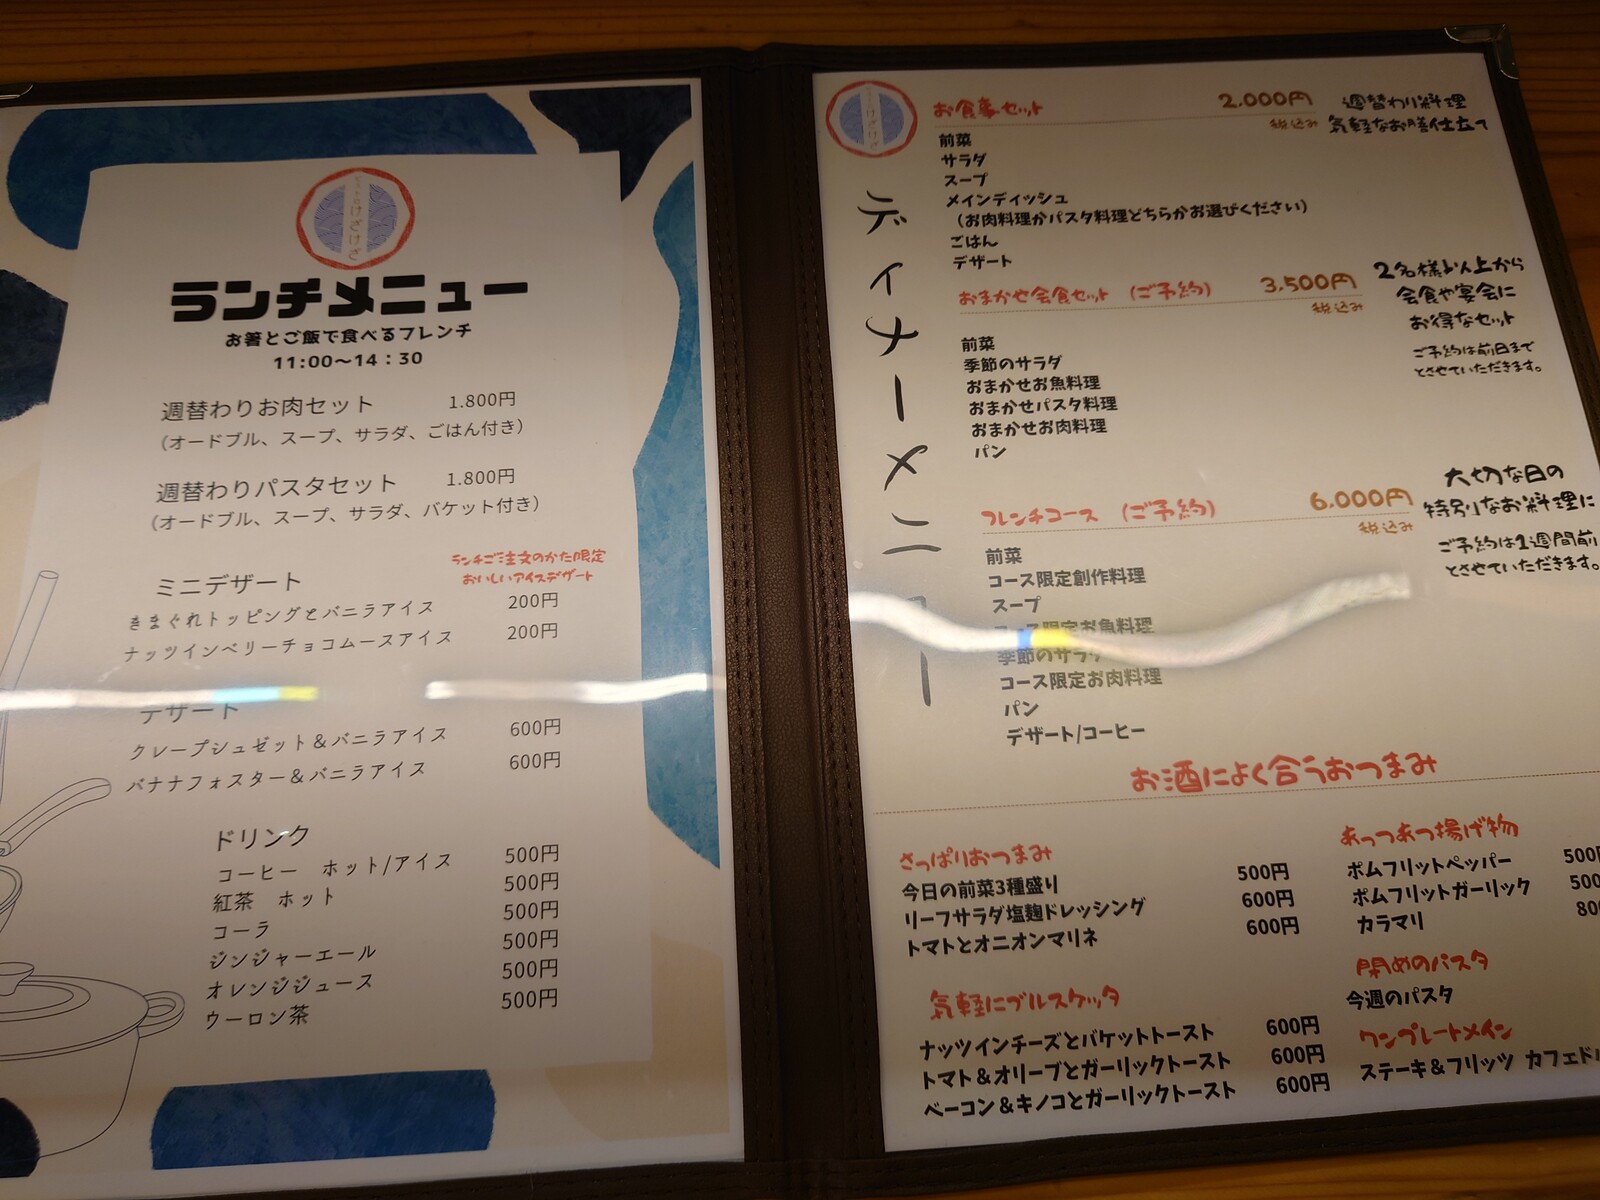 けざけざ
ランチメニュー
お箸とご飯で食べるフレンチ
11:00〜14:30
週替わりお肉セット 1.800円
(オードブル、スープ、サラダ、ごはん付き)
週替わりパスタセット 1.800円
(オードブル、スープ、サラダ、バケット付き)
ランチご注文のかた限定
おいしいアイスデザート
ミニデザート
きまぐれトッピングとバニラアイス 200円
ナッツインベリーチョコムースアイス 200円
デザート
クレープシュゼット&バニラアイス 600円
バナナフォスター&バニラアイス 600円
ドリンク
コーヒー ホット/アイス 500円
紅茶 ホット 500円
コーラ 500円
ジンジャーエール 500円
オレンジジュース 500円
ウーロン茶 500円
けざけざ
ディナーメニュー
お食事セット 2,000円
税込み
週替わり料理
気軽なお膳仕立て
前菜
サラダ
スープ
メインディッシュ
(お肉料理かパスタ料理どちらかお選びください)
ごはん
デザート
おまかせ会食セット (ご予約) 3,500円
税込み
2名様より以上から
会食や宴会に
お得なセット
ご予約は前日まで
とさせていただきます。
前菜
季節のサラダ
おまかせお魚料理
おまかせパスタ料理
おまかせお肉料理
パン
フレンチコース (ご予約) 6,000円
税込み
大切な日の
特別なお料理に
ご予約は1週間前
とさせていただきます。
前菜
コース限定創作料理
スープ
コース限定お魚料理
季節のサラダ
コース限定お肉料理
パン
デザート/コーヒー
お酒によく合うおつまみ
さっぱりおつまみ
今日の前菜3種盛り 500円
リーフサラダ塩麹ドレッシング 600円
トマトとオニオンマリネ 600円
気軽にブルスケッタ
ナッツインチーズとバケットトースト 600円
トマト&オリーブとガーリックトースト 600円
ベーコン&キノコとガーリックトースト 600円
あっつあつ揚げ物
ポムフリットペッパー 500
ポムフリットガーリック 500
カラマリ 80
〆めのパスタ
今週のパスタ
ワンプレートメイン
ステーキ&フリッツ カフェド